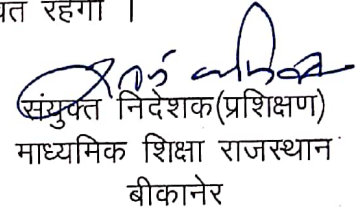 रहेगा ।
संयुक्त निदेशक(प्रशिक्षण)
माध्यमिक शिक्षा राजस्थान
बीकानेर